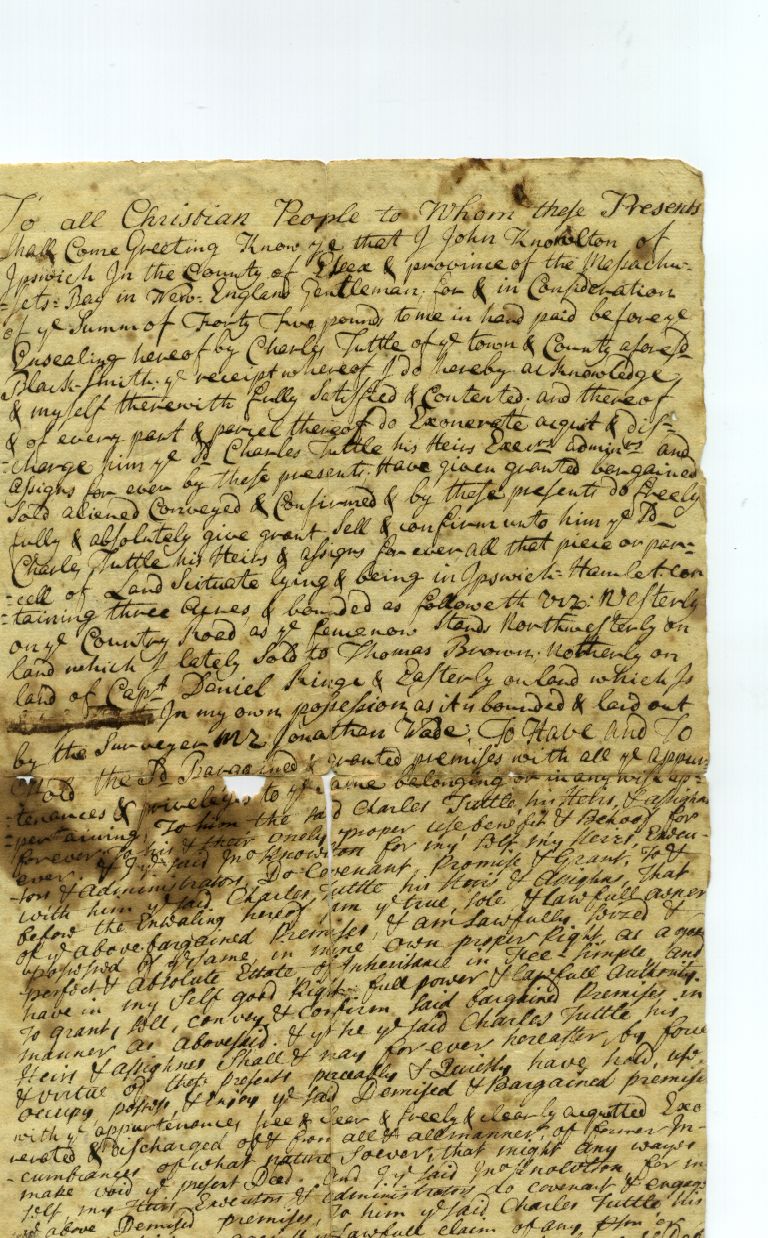 To all Christian People to Whom these Presents
Shall Come Greeting Know ye that I John Knowlton of
Ipswich In the County of Essex & province of the Massachu-
-sets-Bay in New-England Gentleman for & in Consideration
of ye Summ of Forty Two pounds to me in hand paid before ye
Ensealing hereof by Charles Tuttle of ye town & County aforesd
Black-Smith ye receipt whereof I do hereby acknowledge
& my self therewith fully Satisfied & Contented and thereof
& of every part & parcel thereof do Exonerate acquit & dis-
-charge him ye sd Charles Tuttle his Heirs Execrs adminrs and
assigns for ever by these presents. Have given granted bargained
Sold aliened Conveyed & Confirmed & by these presents do freely
fully & absolutely give grant Sell & confirm unto him ye sd
Charles Tuttle his Heirs & assigns for ever all that piece or par-
-cell of Land Scituate lying & being in Ipswich-Hamlet con
-taining three acres, & bounded as followeth viz. Westerly
on ye Country Road as ye fence now Stands Northwesterly on
land which I lately Sold to Thomas Brown. Notherly on
land of Capt Daniel Ringe & Easterly on land which Is
In my own possession as it is bounded & laid out
by the Surveyer mr Jonathan Wade. To Have and To
Hold the sd Bargained & granted premises with all ye appur-
-tenances & priveleges to ye same belonging or in any wise ap-
-pertaining To him the said Charles Tuttle, his Heirs, & assighns
forever, to his & their onely proper use benefit & Behoof for
ever. & I ye said Jno Knowlton for my Self my Heirs, Execu-
tors & Administrators, Do Covenant Promise & Grant, to &
with him ye said Charles Tuttle his Heirs & Assighns, That
before the Ensealing hereof I am ye true, sole, & lawfull owner
of ye above bargained Premises, & am Lawfully Seized &
possessed of ye same, in mine own proper Right, as a good
perfect & Absolute Estate of Inheritance in Fee-Simple, and
have in my self good Right full power & lawfull Authority
To grant, sell, convey & confirm said bargaind Premises in
manner as abovesaid. & yt he ye said Charles Tuttle his
Heirs & assighnes Shall & may for ever hereafter, by force
& virtue of these presents peaceably & Quietly have hold, use,
occupy possess & enjoy ye said Demised & Bargained premises
with ye appurtenances free & cleer & freely & clearly acquitted Exo
nerated & Discharged of & from all & all manner, of former In-
-cumbrances of what nature soever, that might any wayes
make void ye present Deed. And I ye said Jno Knowlton for my
self my Heirs Executors & administrators, do covenant & engage
ye above Demised premises, To him ye said Charles Tuttle his
lawfull claim of any